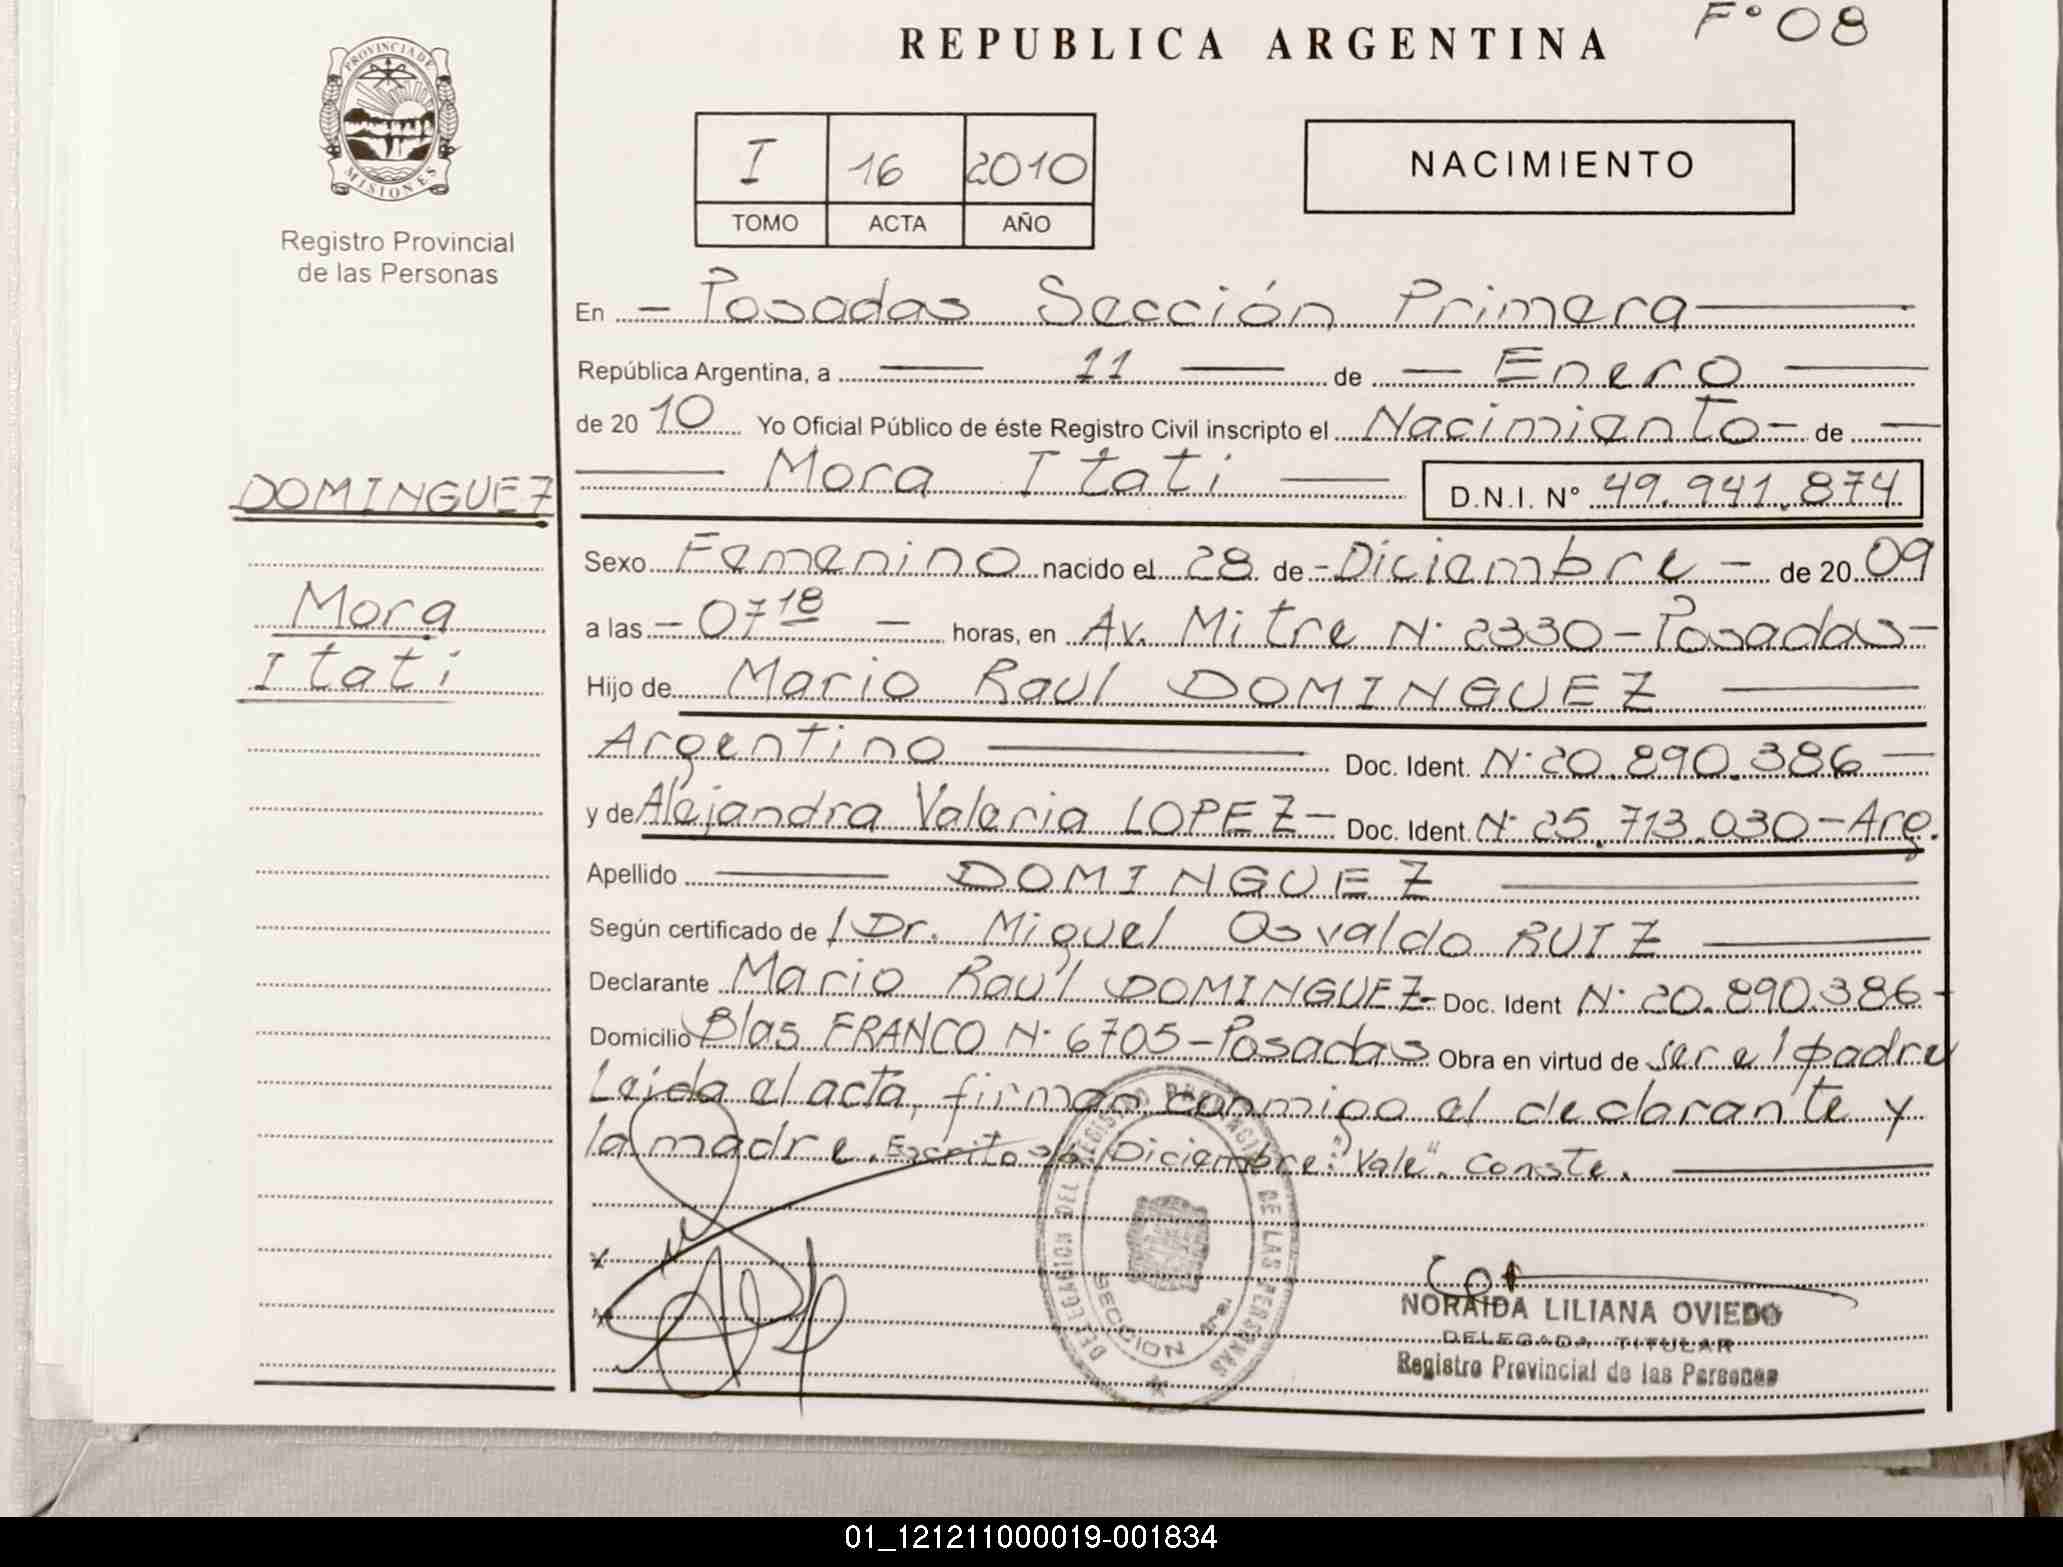 REPUBLICA ARGENTINA
F° 08
PROVINCIA DE
MISIONES
Registro Provincial
de las Personas
I 16 2010
TOMO ACTA AÑO
NACIMIENTO
En - Posadas Sección Primera
República Argentina, a 11 de Enero
de 2010 Yo Oficial Público de éste Registro Civil inscripto el Nacimiento - de -
Mora Itati D.N.I. N° 49.941.874
DOMINGUEZ
Mora
Itatí
Sexo Femenino nacido el 28 de - Diciembre - de 2009
a las - 07 18 - horas, en Av. Mitre N° 2330 - Posadas -
Hijo de Mario Raul DOMINGUEZ
Argentino Doc. Ident. N° 20.890.386 -
y de Alejandra Valeria LOPEZ - Doc. Ident. N° 25.713.030 - Arg.
Apellido DOMINGUEZ
Según certificado de / Dr. Miguel Osvaldo RUIZ
Declarante Mario Raúl DOMINGUEZ - Doc. Ident N° 20.890.386 -
Domicilio Blas FRANCO N° 6705 - Posadas Obra en virtud de ser el padre
Leida el acta, firman conmigo el declarante y
la madre. Escrito s/b Diciembre: "Vale". Conste.
DELEGACION DEL REGISTRO PROVINCIAL DE LAS PERSONAS
SECCION 1ra.
NORAIDA LILIANA OVIEDO
DELEGADA TITULAR
Registro Provincial de las Personas
01_121211000019-001834